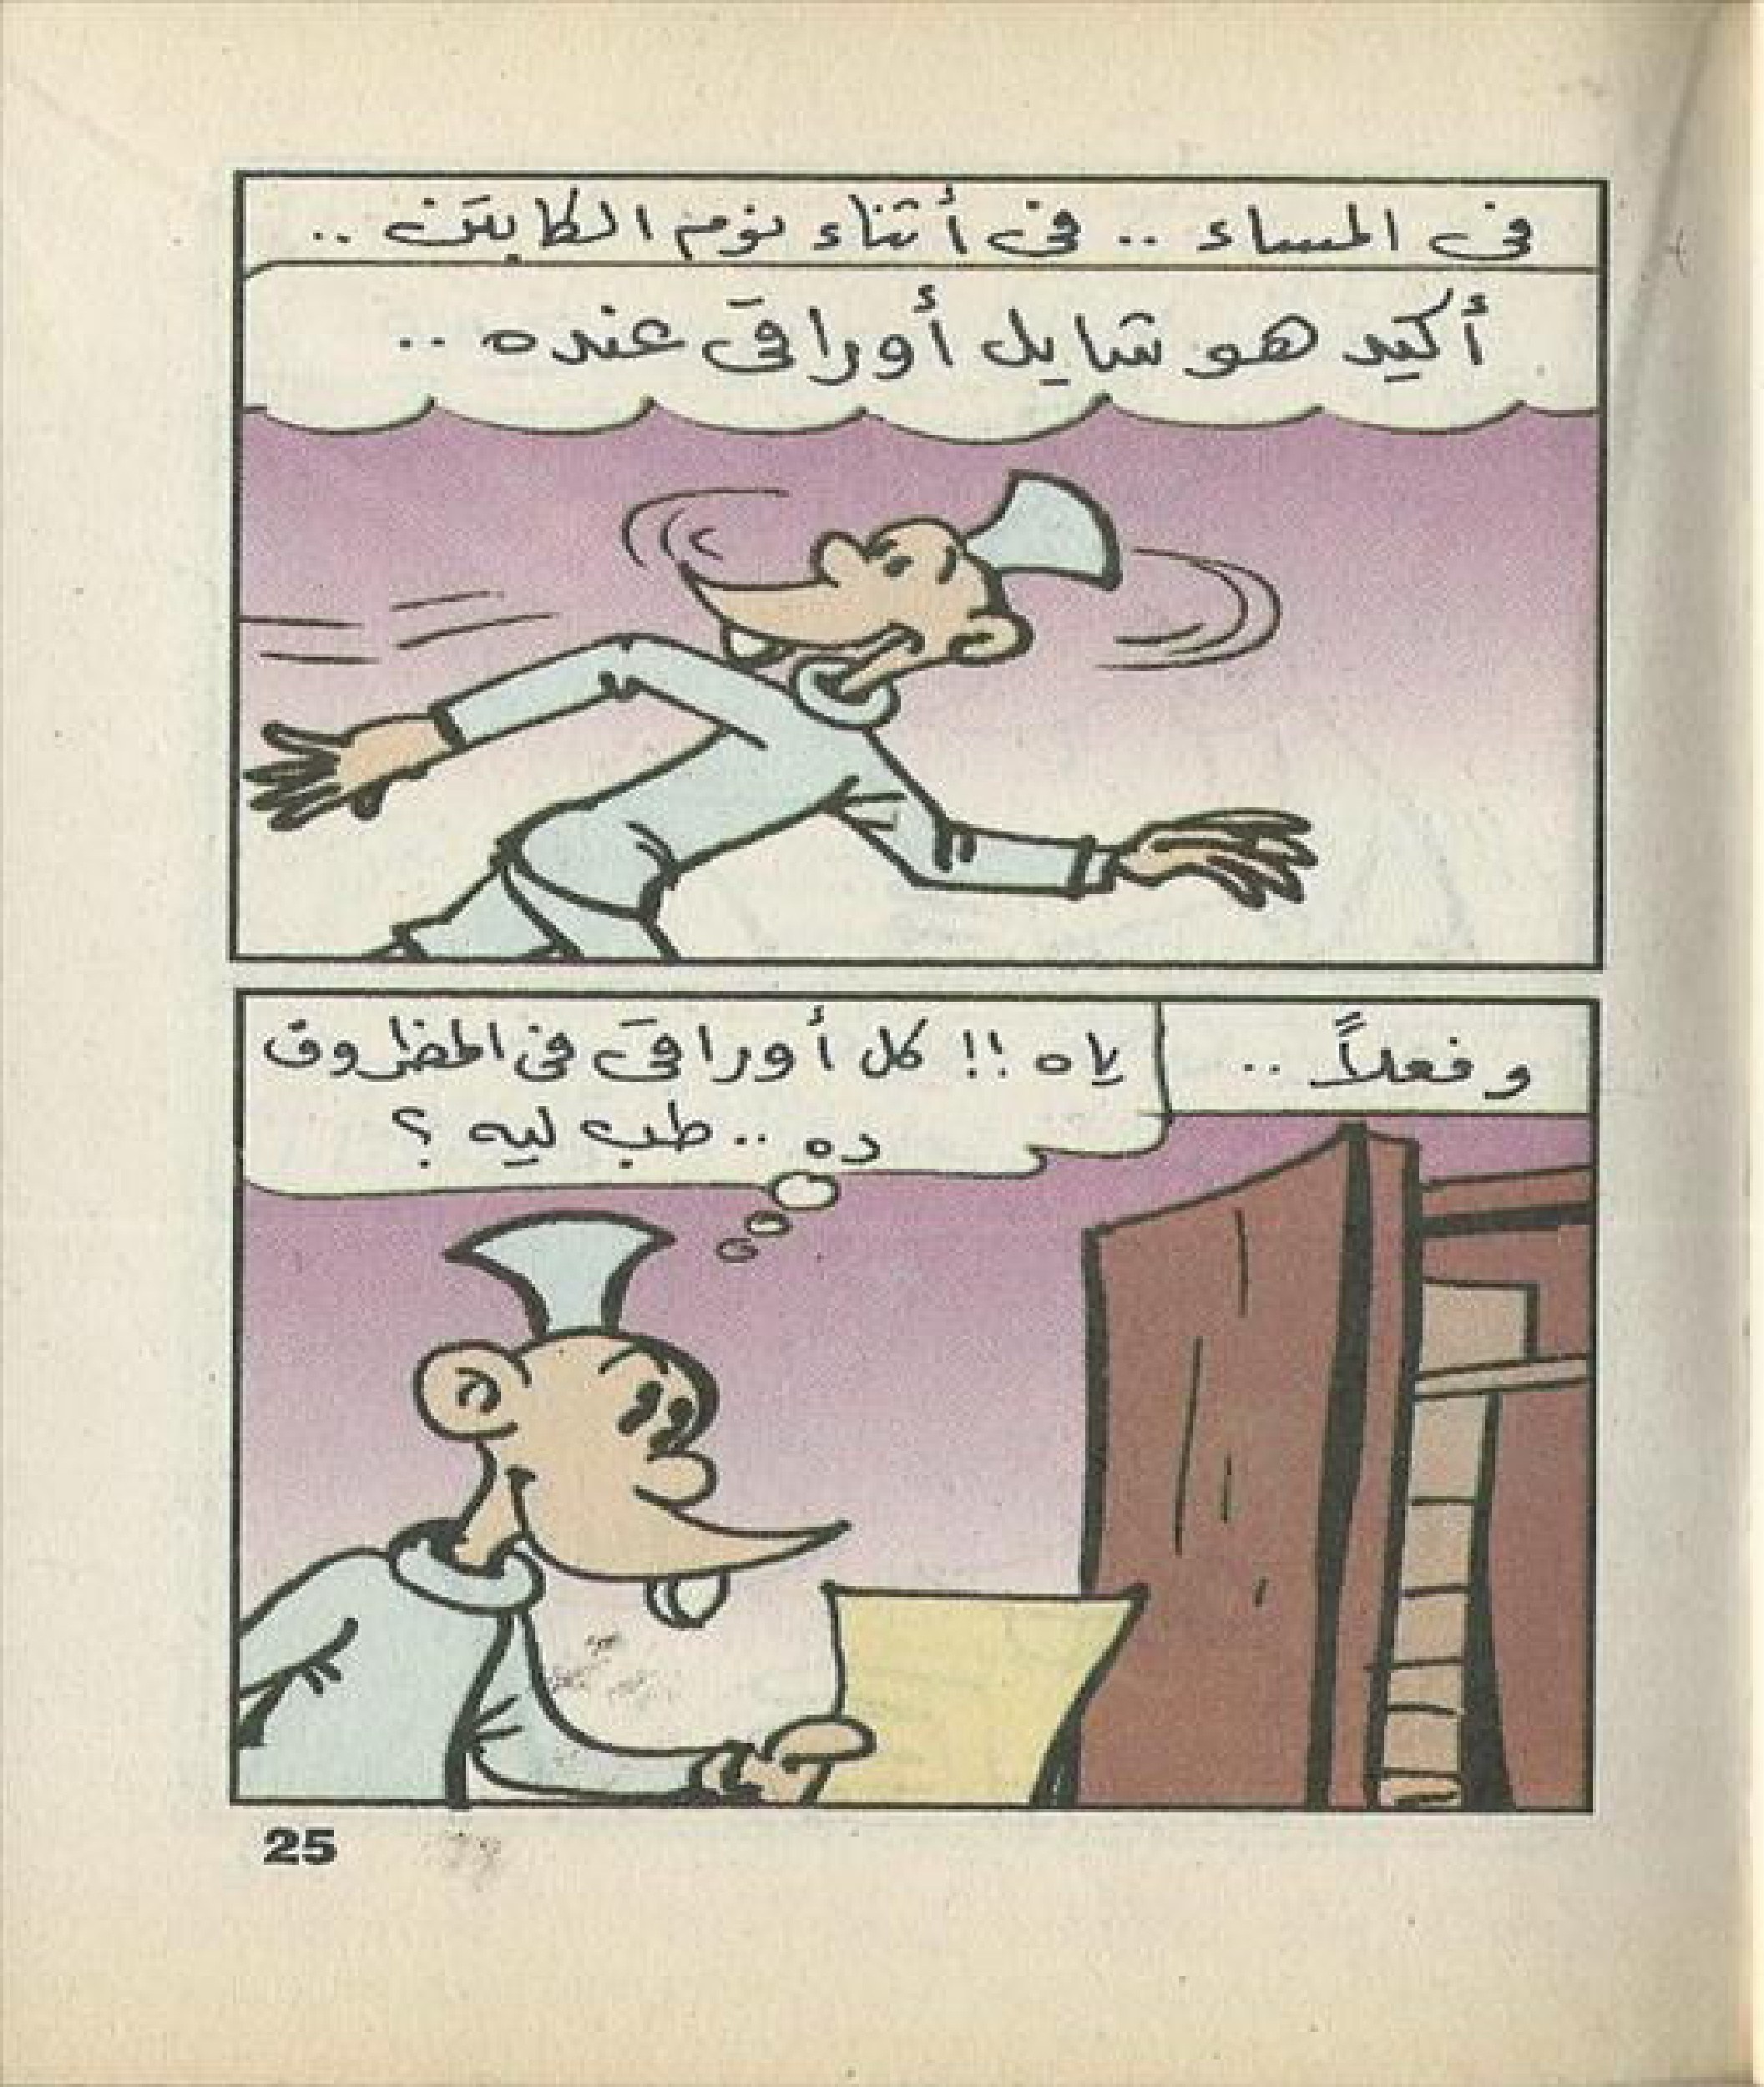 فى المساء .. فى أثناء نوم الكابتن ..
أكيد هو شايل أوراقى عنده ..
وفعلاً ..
ياه !! كل أوراقى فى المظروف
ده .. طب ليه ؟
25